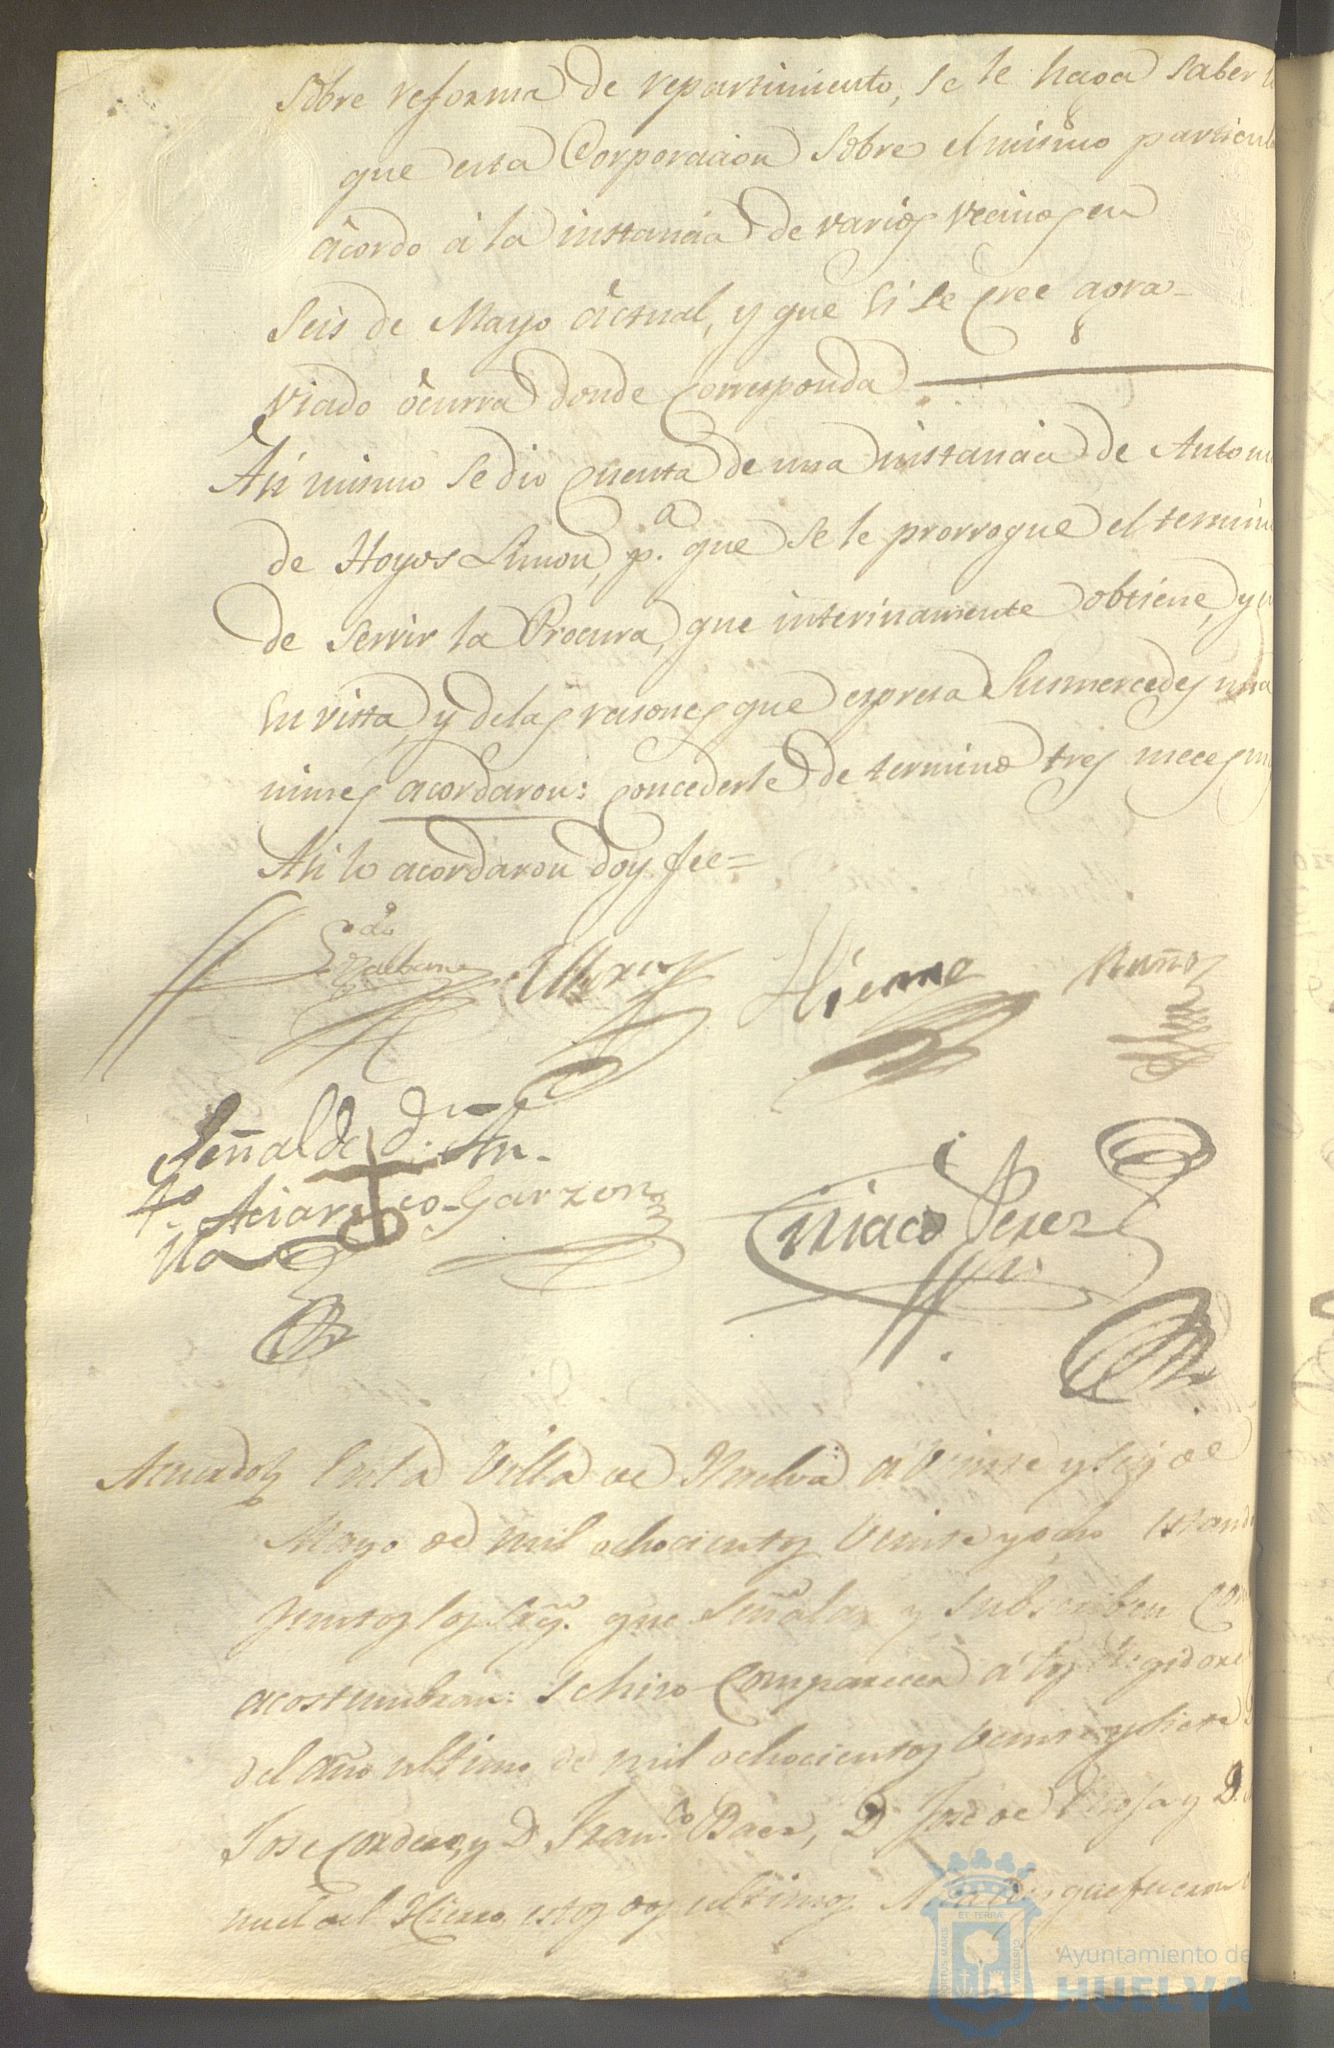 Sobre reforma de repartimiento, se le haga saber lo
que esta Corporacion sobre el mismo particul
acordo á la instancia de varios vecinos en
Seis de Mayo actual, y que si se cree agra-
viado ocurra donde corresponda
Asi mismo se dio cuenta de una instancia de Antoni
de Hoyos Limon, p.a que se le prorrogue el termin
de servir la Procura, que interinamente obtiene, y
su vista, y delas rasones que espresa Sus mercedes una
nimes acordaron: Concederle de termino tres meces m
Asi lo acordaron doy fee=
Hierro Muñoz
Señal de d. An-
to Garzon
Ciriaco Perez
Acuerdo En la Villa de Huelva a veinte y seis de
Mayo de mil ochocientos veinte y ocho estand
juntos los Sres. que señalan y subscriben Com
acostumbran: se hizo comparecer a los Regidores
del año ultimo de mil ochocientos veinte y siete D
Jose Cordero, y D Franco Baez, D. Jose de Rioja y D.
nuel del Hierro estos dos ultimos que fueron
PORTUS MARIS ET TERRAE CUSTODIA
Ayuntamiento de
HUELVA